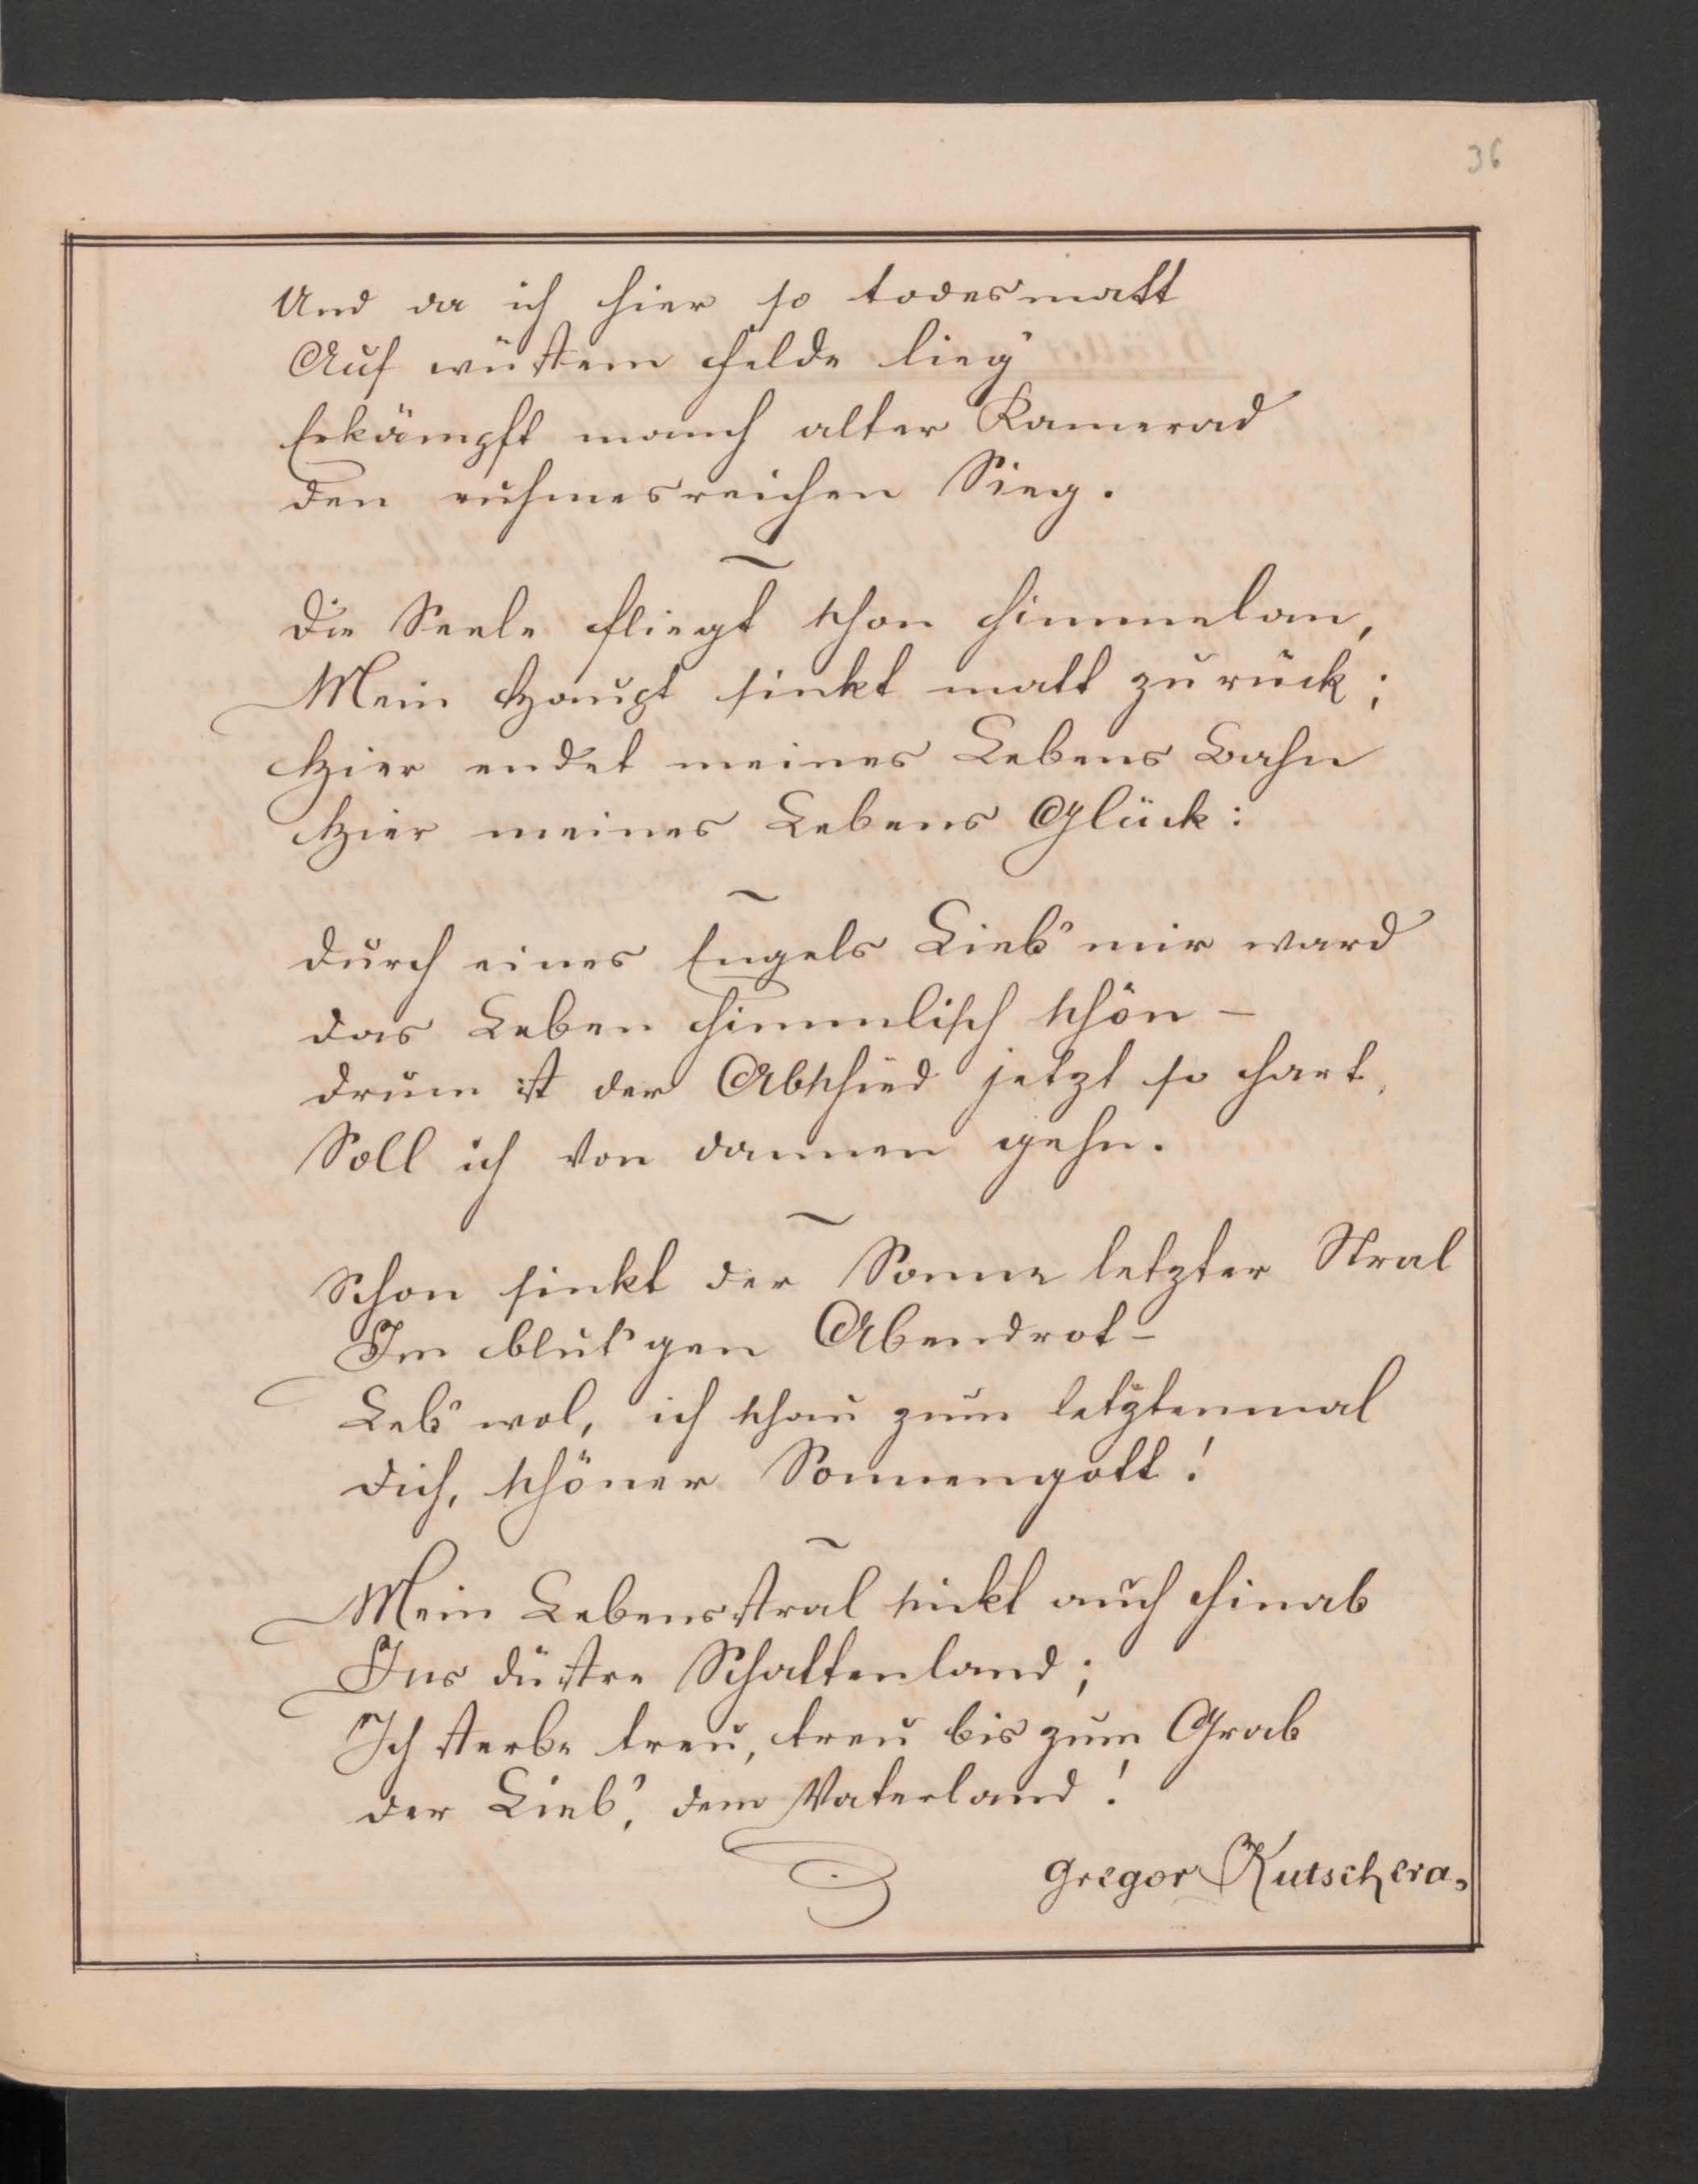 36
Und da ich hier so todesmatt
Auf wüstem Felde lieg'
Erkämpft manch alter Kamerad
Den ruhmesreichen Sieg.
~
Die Seele fliegt schon himmelan,
Mein Haupt sinkt matt zurück;
Hier endet meines Lebens Bahn
Hier meines Lebens Glück:
~
Durch eines Engels Lieb' mir ward
Das Leben himmlisch schön –
Drum ist der Abschied jetzt so hart,
Soll ich von dannen gehn.
~
Schon sinkt der Sonne letzter Stral
Im blut'gen Abendrot –
Leb' wol, ich schau zum letztenmal
Dich, schöner Sonnengott!
~
Mein Lebensstral sinkt auch hinab
Ins düstre Schattenland;
Ich sterbe treu, treu bis zum Grab
Der Lieb', dem Vaterland!
Gregor Kutschera.